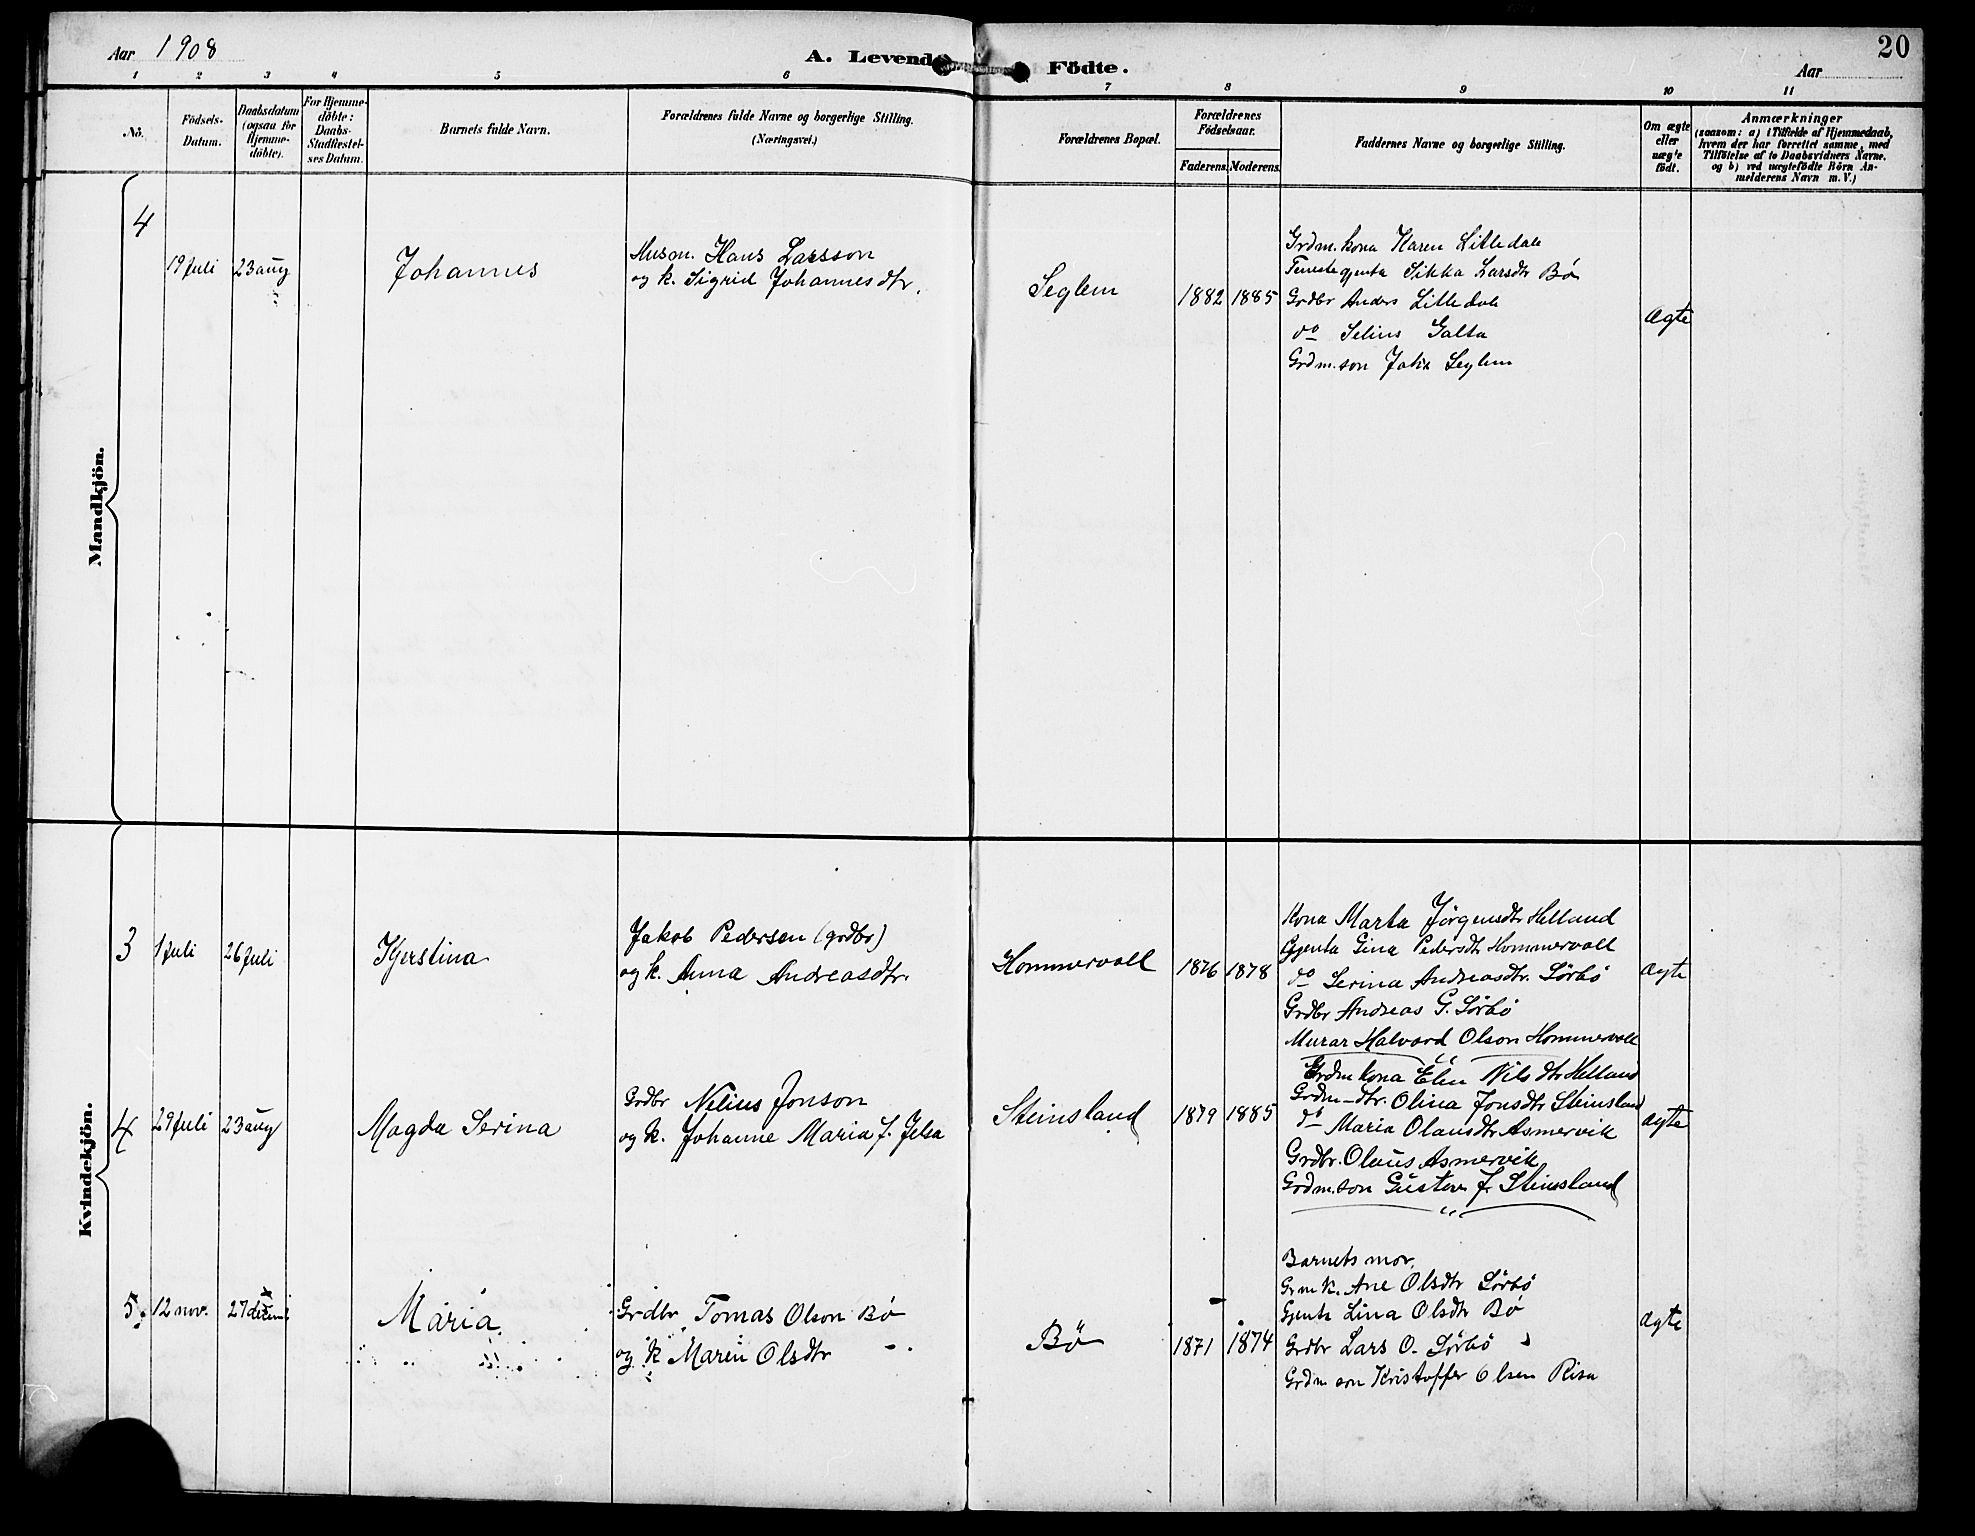 Aar 1908
A. Levende Födte.
20
Aar
1 2 3 4 5 6 7 8 9 10 11
No.
Födsels-
Datum.
Daabsdatum
(ogsaa for
Hjemme-
döbte).
For Hjemme-
döbte:
Daabs-
Stadfæstel-
ses Datum.
Barnets fulde Navn.
Forældrenes fulde Navne og borgerlige Stilling.
(Næringsvei.)
Forældrenes Bopæl.
Forældrenes
Födselsaar.
Faderens. Moderens.
Faddernes Navne og borgerlige Stilling.
Om ægte
eller
uægte
födt.
Anmærkninger
(saasom: a) i Tilfælde af Hjemmedaab,
hvem der har forrettet samme, med
Tilföielse af to Daabsvidners Navne.
og b) ved uægtefödte Börn An-
melderens Navn m. V.)
Mandkjön.
4
19 Juli
23 aug
Johannes
Husm. Hans Larsson
og k. Sigrid Johannesdtr.
Seglem
1882
1885
Grdm. kona Karen Litledale
Tenestegjenta Sikka Larsdtr Bø
Grdbr Anders Litledale
do Selius Galta
Grdm.son Seglem
ægte
Kvindekjön.
3
1 Juli
26 Juli
Kjerstina
Jakob Pedersen (grdbr)
og k. Anna Andreasdtr.
Hommervoll
1876
1878
Kona Marta Jörgensdtr Helland
Gjenta Gina Pedersdtr Hommervoll
do Serina Andreasdtr. Sörbö
Grdbr Andreas G. Sörbö
Murar Halvard Olson Hommervoll
ægte
4
29 Juli
23 aug
Magda Serina
Grdbr Nelius Jonson
og k. Johanne Maria J. Jelsa
Steinsland
1879
1885
Grdm kona Elen Nilsdtr Helland
Grdm-dtr. Olina Jonsdtr Steinsland
do Maria Olausdtr Asmervik
Grdbr. Olaus Asmervik
Grdm.son Gustav J. Steinsland
ægte
5
12 nov.
27 decem
Maria
Grdbr. Tomas Olson Bø
og k Maren Olsdtr
Bø
1871
1874
Barnets mor.
Grm k. Ane Olsdtr Sörbö
Gjenta Lina Olsdtr Bø
Grdbr Lars O. Sörbö
Grdm son Kristoffer Olsen Risa
ægte